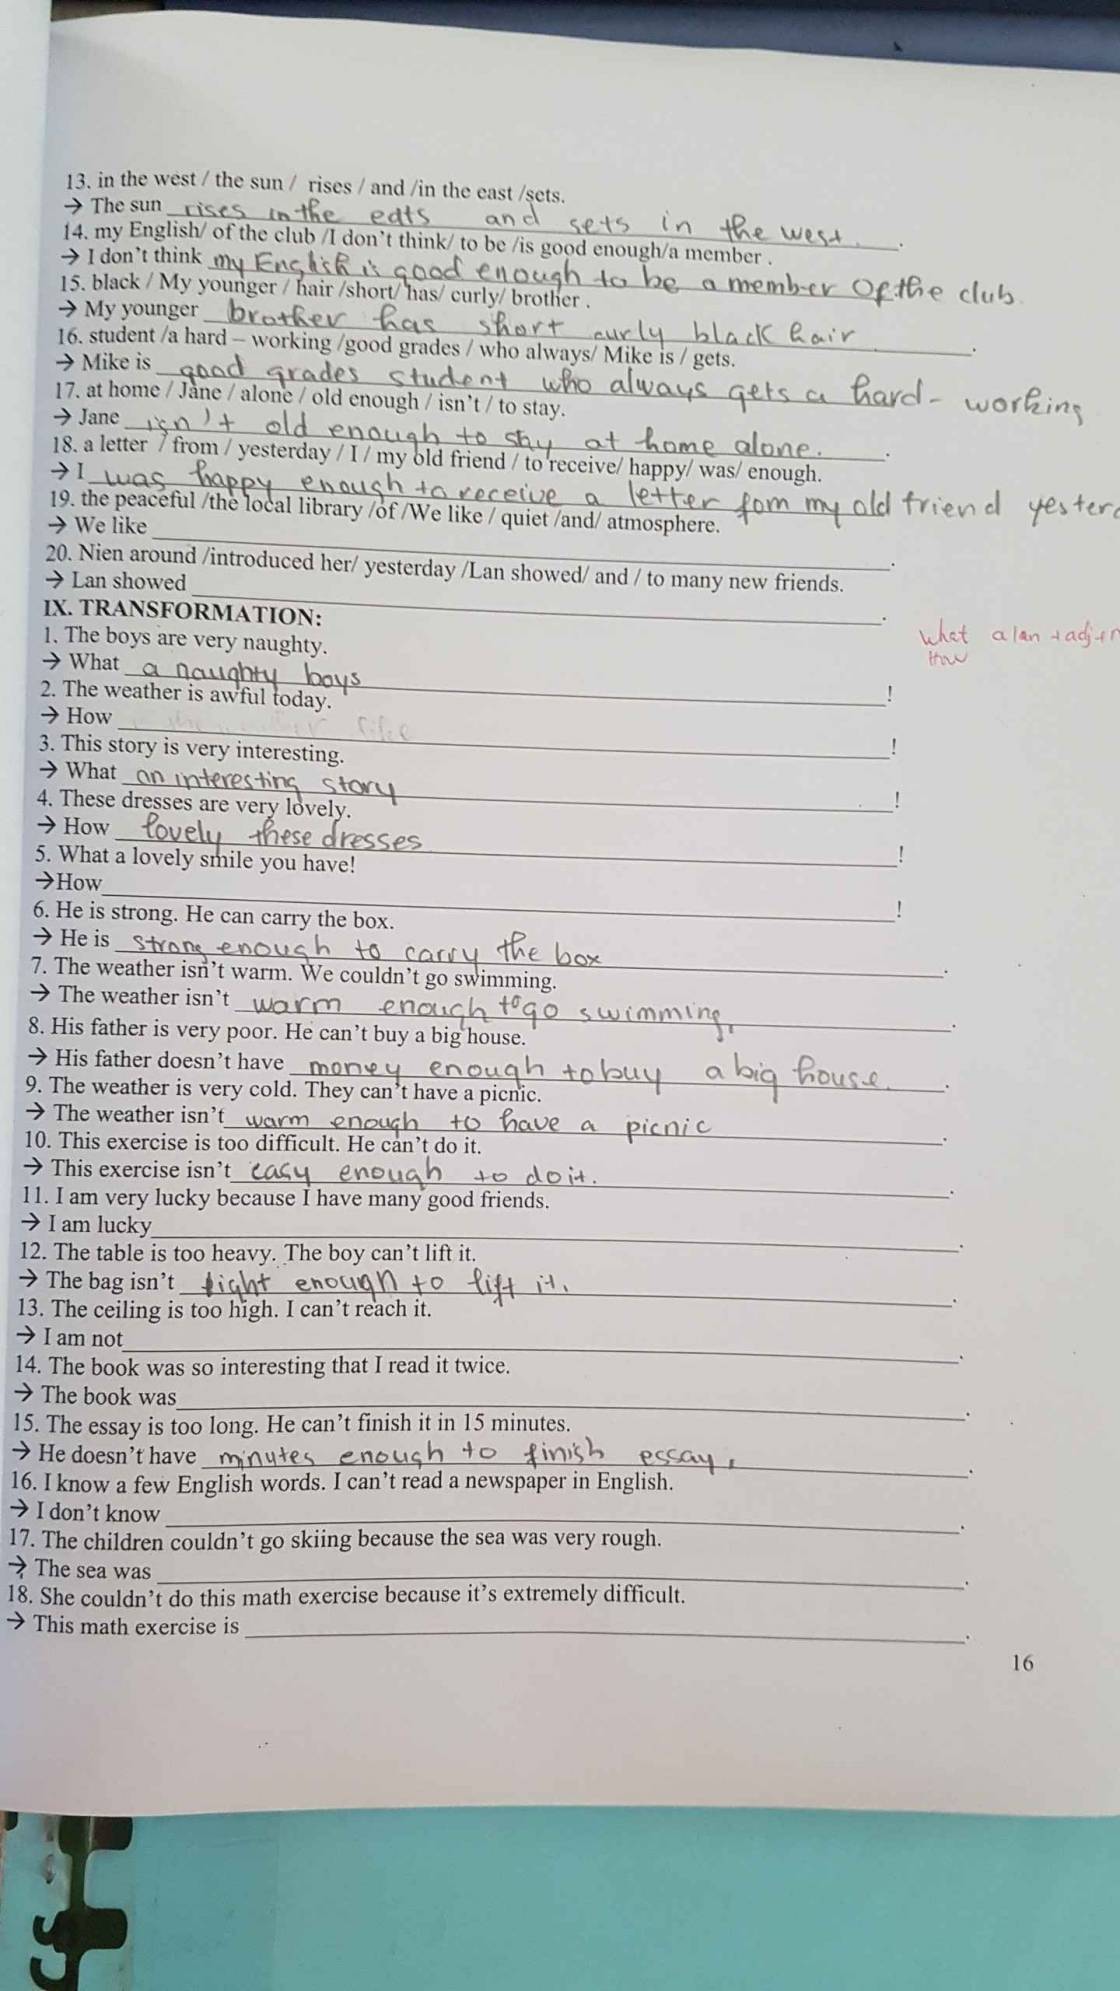 13. in the west / the sun / rises / and /in the east /sets.
→ The sun rises in the eats and sets in the west.
14. my English/ of the club /I don't think/ to be /is good enough/a member .
→ I don't think my English is good enough to be a member of the club.
15. black / My younger / hair /short/ has/ curly/ brother .
→ My younger brother has short curly black hair.
16. student /a hard – working /good grades / who always/ Mike is / gets.
→ Mike is good grades student who always gets a hard - working
17. at home / Jane / alone / old enough / isn't / to stay.
→ Jane isn't old enough to stay at home alone.
18. a letter / from / yesterday / I / my old friend / to receive/ happy/ was/ enough.
→ I was happy enough to receive a letter fom my old friend yester
19. the peaceful /the local library /of /We like / quiet /and/ atmosphere.
→ We like .
20. Nien around /introduced her/ yesterday /Lan showed/ and / to many new friends.
→ Lan showed .
IX. TRANSFORMATION:
what a/an + adj + n
How
1. The boys are very naughty.
→ What a naughty boys !
2. The weather is awful today.
→ How !
3. This story is very interesting.
→ What an interesting story !
4. These dresses are very lovely.
→ How lovely these dresses !
5. What a lovely smile you have!
→How !
6. He is strong. He can carry the box.
→ He is strong enough to carry the box .
7. The weather isn't warm. We couldn't go swimming.
→ The weather isn't warm enough to go swimming. .
8. His father is very poor. He can't buy a big house.
→ His father doesn't have money enough to buy a big house. .
9. The weather is very cold. They can't have a picnic.
→ The weather isn't warm enough to have a picnic .
10. This exercise is too difficult. He can't do it.
→ This exercise isn't easy enough to do it. .
11. I am very lucky because I have many good friends.
→ I am lucky .
12. The table is too heavy. The boy can't lift it.
→ The bag isn't light enough to lift it. .
13. The ceiling is too high. I can't reach it.
→ I am not .
14. The book was so interesting that I read it twice.
→ The book was .
15. The essay is too long. He can't finish it in 15 minutes.
→ He doesn't have minutes enough to finish essay. .
16. I know a few English words. I can't read a newspaper in English.
→ I don't know .
17. The children couldn't go skiing because the sea was very rough.
→ The sea was .
18. She couldn't do this math exercise because it's extremely difficult.
→ This math exercise is .
16